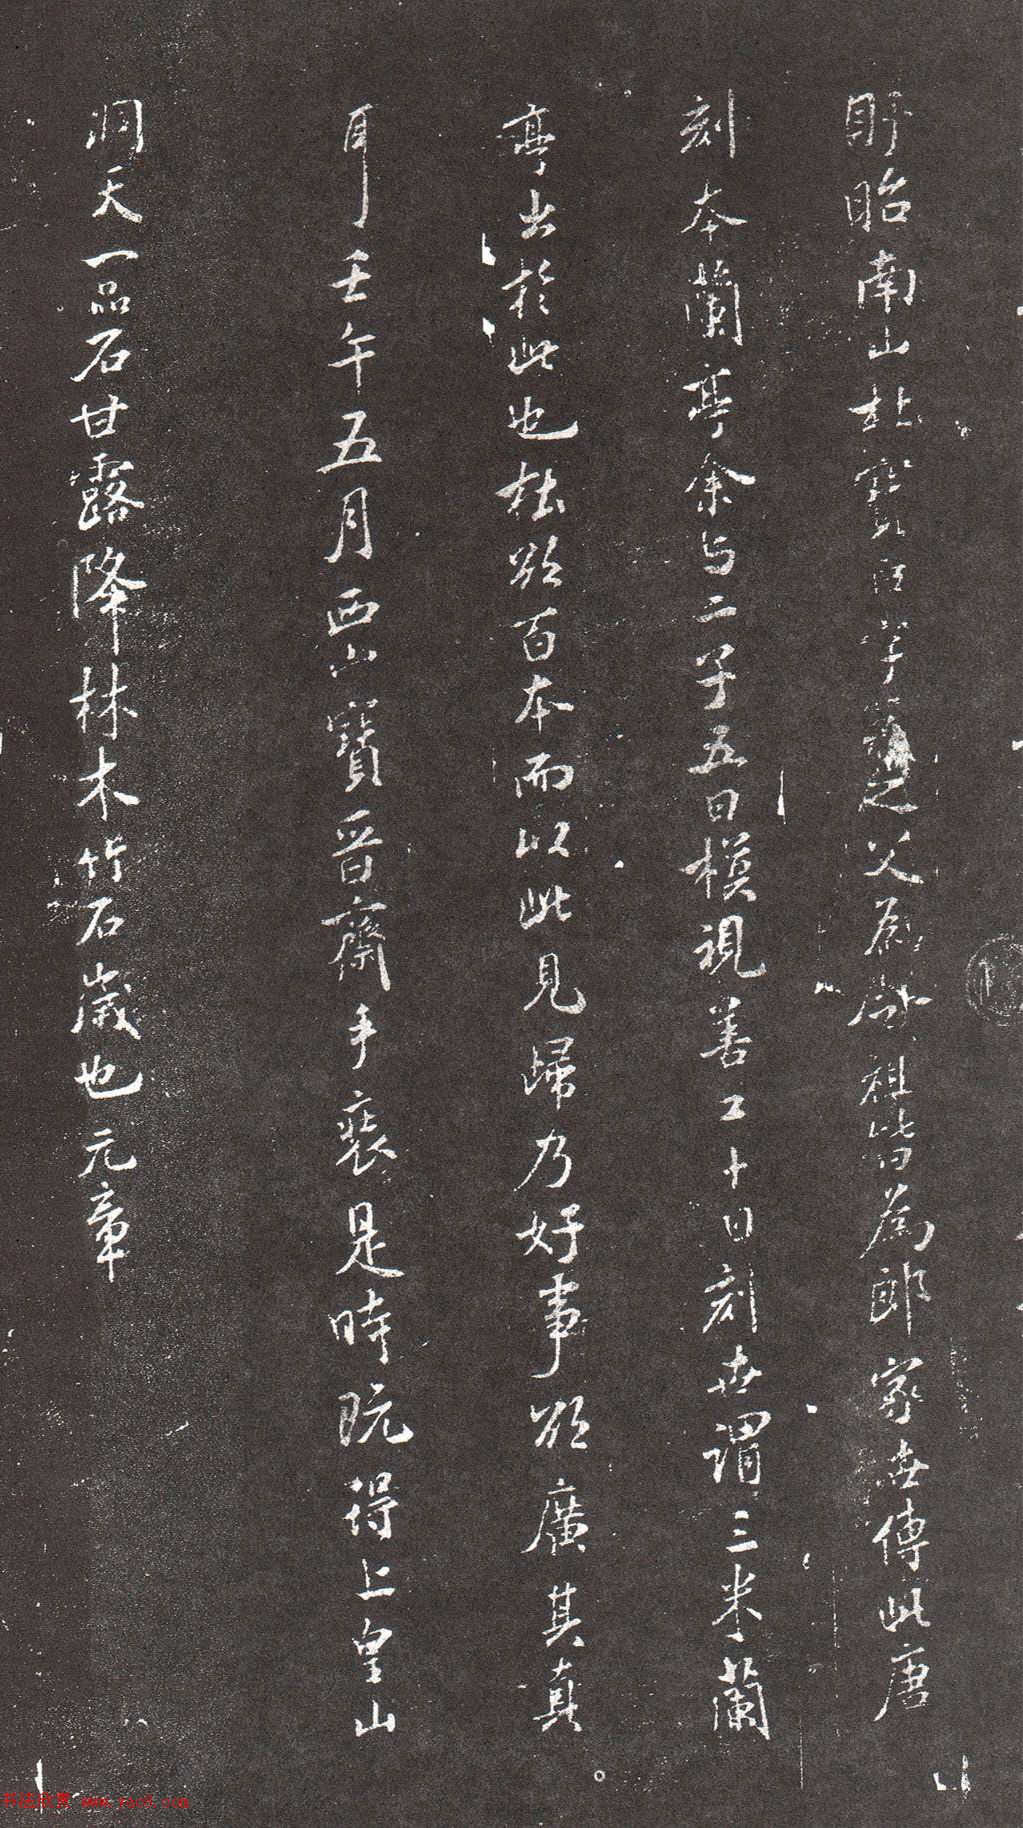 盱眙南山杜寶臣字器之父爲郎祖皆為郎家世傳此唐
刻本蘭亭余与二子五日模視善工十日刻世謂三米蘭
亭出於此也杜欲百本而以此見歸乃好事欲廣其真
耳壬午五月西山寶晉齋手裝是時既得上皇山
洞天一品石甘露降林木竹石歲也元章
www.yac8.com